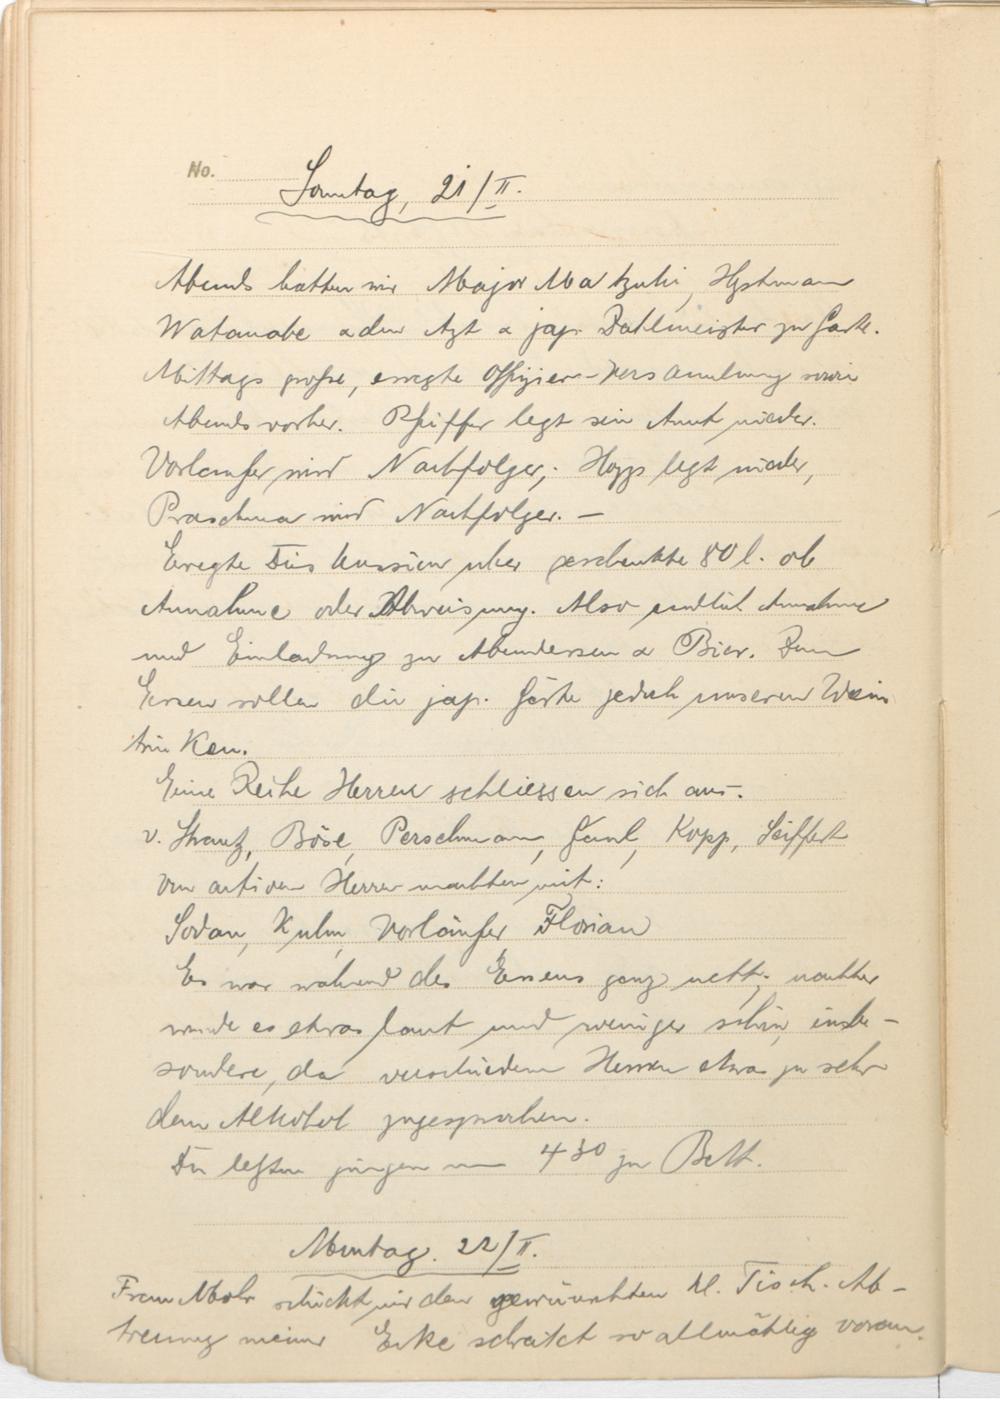 No.
Sonntag, 21/II.
Abends hatten wir Major Matzuki, Hptmann
Watanabe u den Azt u jap. Zahlmeister zu Gaste.
Mittags große, erregte Offizier-Versammlung sowie
Abends vorher. Pfeiffer legt sein Amt nieder.
Vorläufer wird Nachfolger; legt nieder,
Praschma wird Nachfolger. —
Erregte Diskussion über geschenkte 80 l. ob
Annahme oder Abweisung. Also endlich Annahme
und Einladung zu Abendessen u Bier. Zum
Essen sollen die jap. Gäste jedoch unseren Wein
trinken.
Eine Reihe Herren schliessen sich aus.
v. Strantz, Böse, Perschmann, Kopp, Seiffert
Von activen Herren machten mit:
Sodan, Kulm, Vorläufer Florian
Es war während des Essens ganz nett; nachher
wurde es etwas laut und weniger schön, insbe-
sondere, da verschiedene Herren etwas zu sehr
dem Alkohol zugesprochen.
Die letzten gingen um 4 30 zu Bett.
Montag. 22/II.
Frau Mohr schickt mir den gewünschten kl. Tisch. Ab-
trennung meiner Ecke schreitet so allmählig voran.